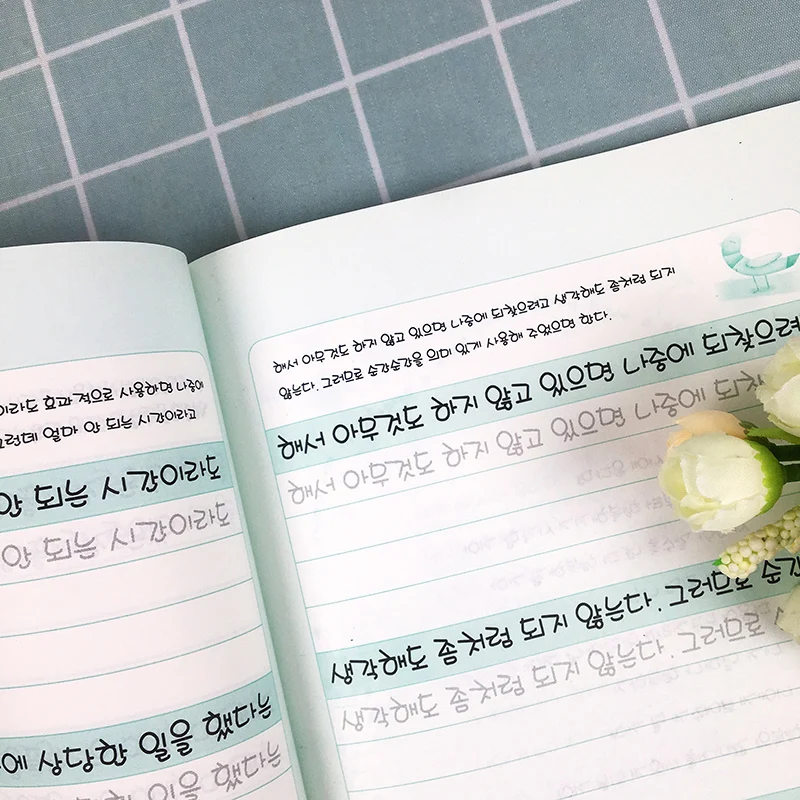 이라도 효과적으로 사용하면 나중에
그런데 얼마 안 되는 시간이라고
안 되는 시간이라도
안 되는 시간이라도
에 상당한 일을 했다는
상당한 일을 했다는
해서 아무것도 하지 않고 있으면 나중에 되찾으려고 생각해도 좀처럼 되지
않는다. 그러므로 순간순간을 의미 있게 사용해 주었으면 한다.
해서 아무것도 하지 않고 있으면 나중에 되찾으려
해서 아무것도 하지 않고 있으면 나중에 되찾
생각해도 좀처럼 되지 않는다. 그러므로 순간
생각해도 좀처럼 되지 않는다. 그러므로